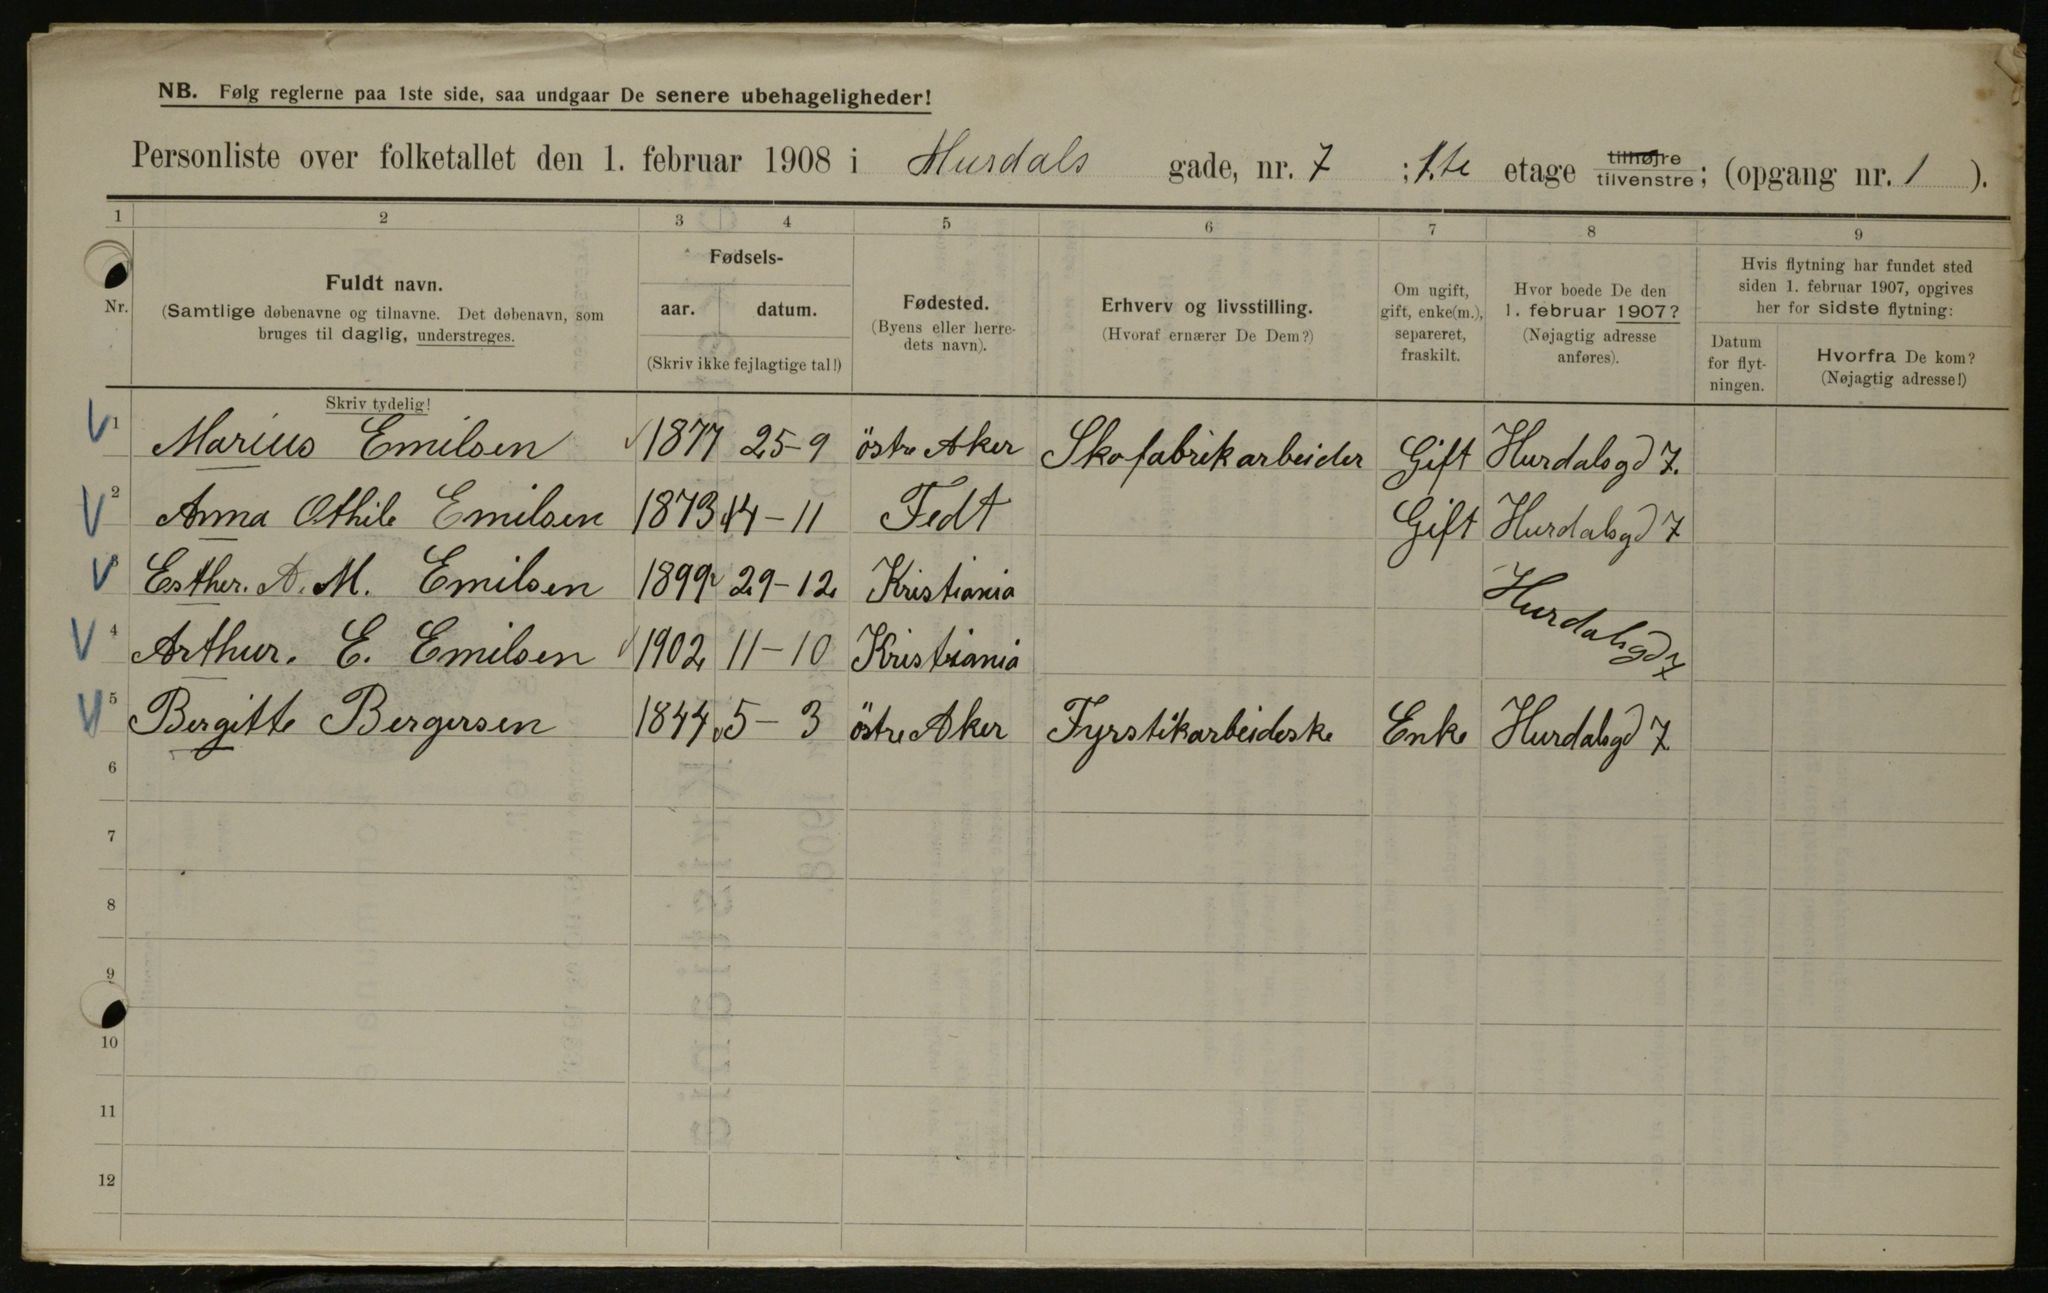 NB. Følg reglerne paa 1ste side, saa undgaar De senere ubehageligheder!
Personliste over folketallet den 1. februar 1908 i Hurdals gade, nr. 7 ; 1.te etage tilhøjre tilvenstre; (opgang nr. 1 ).
1 2 3 4 5 6 7 8 9
Nr.
Fuldt navn.
(Samtlige døbenavne og tilnavne. Det døbenavn, som
bruges til daglig, understreges.
Skriv tydelig!
Fødsels-
aar. datum.
(Skriv ikke fejlagtige tal!)
Fødested.
(Byens eller herre-
dets navn).
Erhverv og livsstilling.
(Hvoraf ernærer De Dem?)
Om ugift,
gift, enke(m.),
separeret,
fraskilt.
Hvor boede De den
1. februar 1907?
(Nøjagtig adresse
anføres).
Hvis flytning har fundet sted
siden 1. februar 1907, opgives
her for sidste flytning:
Datum
for flyt-
ningen.
Hvorfra De kom?
(Nøjagtig adresse!)
1 Marius Emilsen 1877 25-9 östre Aker Skofabrikarbeider Gift Hurdalsgd 7.
2 Anna Othile Emilsen 1873 14-11 Fedt Gift Hurdalsgd 7
3 Esther. A. M. Emilsen 1899 29-12 Kristiania Hurdalsgd 7
4 Arthur. E. Emilsen 1902 11-10 Kristiania
5 Bergitte Bergersen 1844 5-3 östre Aker Fyrstikarbeideske Enke Hurdalsgd 7
6
7
8
9
10
11
12